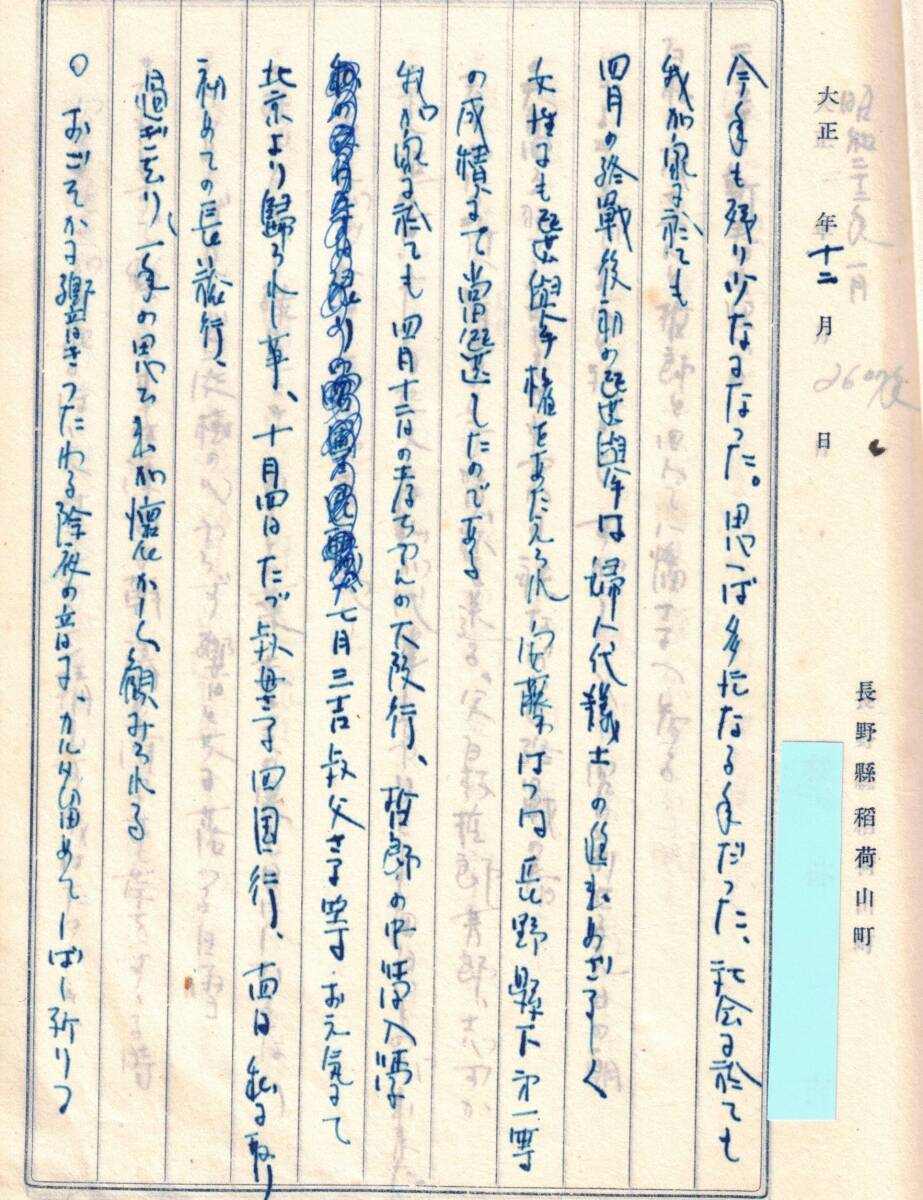 昭和二十二年一月
大正 年十二月 日
長野縣稲荷山町
今年も残り少なになった。思へば多忙なる年だった、社会に於ても
我が家に於ても
四月の終戦後初の選挙は婦人代議士の進出めざましく
女性にも選挙権をあたえられ安藤はつは長野縣下第一等
の成績にて当選したのである
我が家に於ても四月十二日の孝ちゃんの大阪行、哲郎の中学入学
七月三吉叔父さま等お元気にて
北京より歸られし事、十月四日たづ叔母さま四国行、
初めての長旅行、
過ぎ去り一年の思ひ出が懐しく顧みられる
○ おごそかに響きつたわる除夜の音に